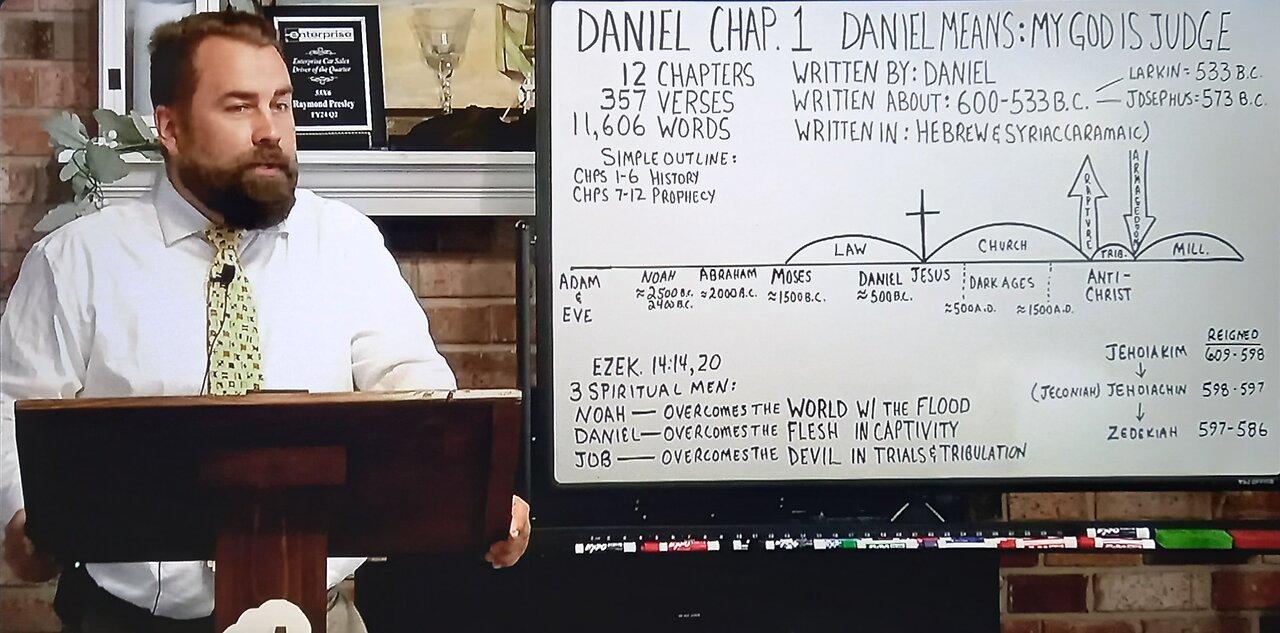 enterprise
Enterprise Car Sales
Driver of the Quarter
Raymond Presley
FY24 Q2
DANIEL CHAP. 1 DANIEL MEANS: MY GOD IS JUDGE
12 CHAPTERS
357 VERSES
11,606 WORDS
WRITTEN BY: DANIEL
WRITTEN ABOUT: 600-533 B.C.
LARKIN = 533 B.C.
JOSEPHUS = 573 B.C.
WRITTEN IN: HEBREW & SYRIAC (ARAMAIC)
SIMPLE OUTLINE:
CHPS 1-6 HISTORY
CHPS 7-12 PROPHECY
RAPTURE
ARMAGEDDON
LAW
CHURCH
TRIB.
MILL.
ADAM
&
EVE
NOAH
≈2500 B.C.
2400 B.C.
ABRAHAM
≈2000 B.C.
MOSES
≈1500 B.C.
DANIEL
≈500 B.C.
JESUS
DARK AGES
≈500 A.D. ≈1500 A.D.
ANTI-
CHRIST
EZEK. 14:14,20
3 SPIRITUAL MEN:
NOAH — OVERCOMES THE WORLD W/ THE FLOOD
DANIEL — OVERCOMES THE FLESH IN CAPTIVITY
JOB — OVERCOMES THE DEVIL IN TRIALS & TRIBULATION
REIGNED
JEHOIAKIM 609-598
(JECONIAH) JEHOIACHIN 598-597
ZEDEKIAH 597-586
EXPO